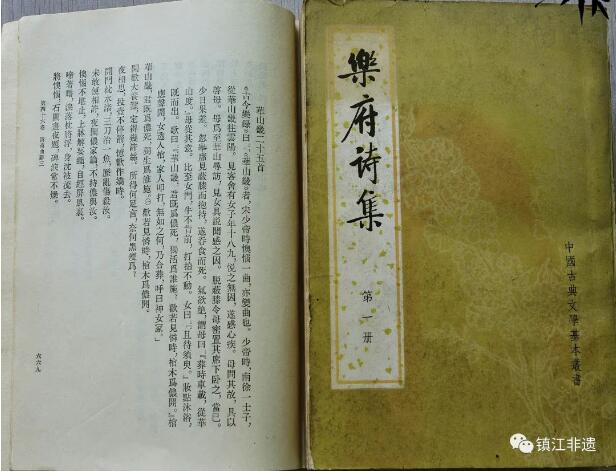 華山畿二十五首
《古今樂錄》曰:「《華山畿》者,宋少帝時懊惱一曲,亦變曲也。少帝時,南徐一士子,
從華山畿往雲陽。見客舍有女子年十八九,悅之無因,遂感心疾。母問其故,具以
啓母。母爲至華山尋訪,見女具說聞感之因。脫蔽膝令母密置其席下臥之,當已。
少日果差。忽舉席見蔽膝而抱持,遂吞食而死。氣欲絕,謂母曰:『葬時車載,從華
山度。』母從其意。比至女門,牛不肯前,打拍不動。女曰:『且待須臾。』妝點沐浴,
既而出。歌曰:『華山畿,君既爲儂死,獨活爲誰施?歡若見憐時,棺木爲儂開。』棺
應聲開,女透入棺,家人叩打,無如之何。乃合葬,呼曰神女冢。」
華山畿,君既爲儂死,獨生爲誰施?歡若見憐時,棺木爲儂開。
聞歡大養蠶,定得幾許絲。所得何足言,奈何黑瘦爲?
夜相思,投壺不停箭,憶歡作嬌時。
開門枕水渚,三刀治一魚,歷亂傷殺汝。
未敢便相許。夜聞儂家論,不持儂與汝。
懊惱不堪止,上牀解要繩,自經屏風裏。
啼著曙,淚落枕將浮,身沈被流去。
將懊惱,石闕晝夜題,碑淚常不燥。
第四十六卷 清商曲辭三
六六九
樂府詩集
第一册
中國古典文學基本叢書
镇江非遗